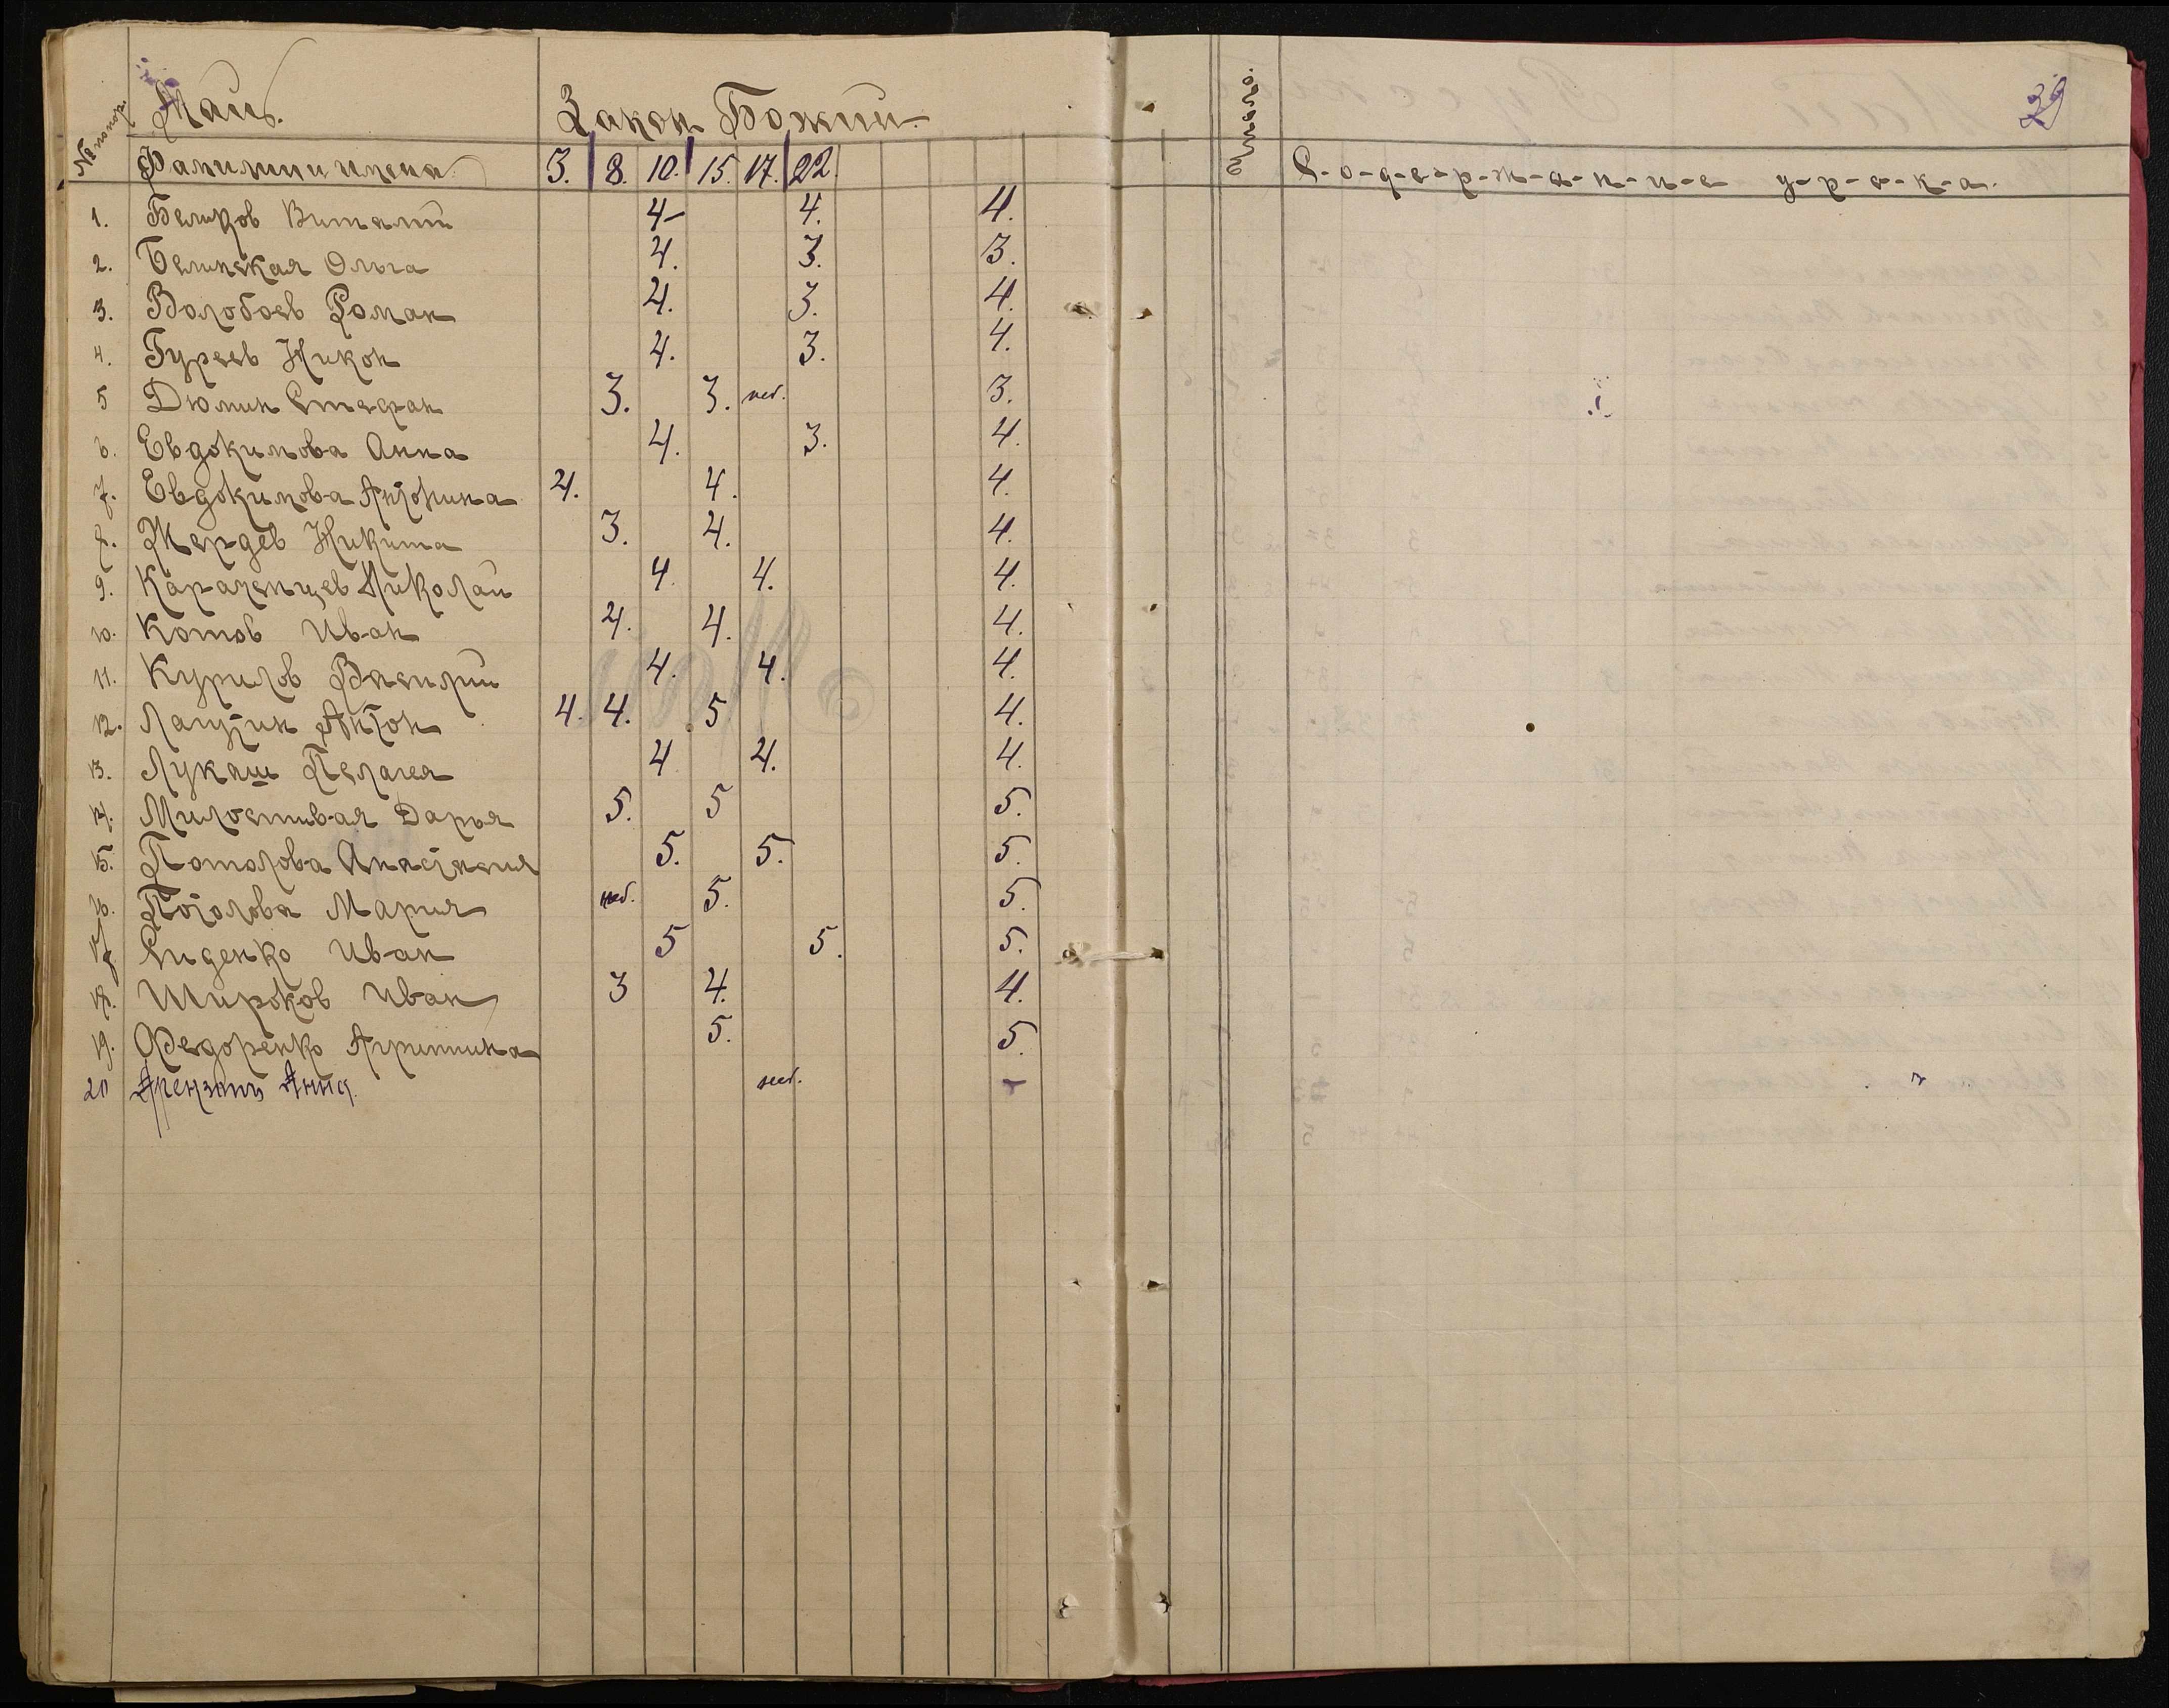 Май.
Закон Божий
№ по пор.
Фамилии и имена 3. 8. 10. 15. 17. 22.
1. Беликов Виталий 4- 4. 4.
2. Белинская Ольга 4. 3. 3.
3. Волобоев Роман 4. 3. 4.
4. Гуреев Никон 4. 3. 4.
5 Дюмин Стефан 3. 3. нет. 3.
6. Евдокимова Анна 4. 3. 4.
7. Евдокимова Антонина 4. 4. 4.
8. Жердев Никита 3. 4. 4.
9. Караченцев Николай 4. 4. 4.
10. Котов Иван 4. 4. 4.
11. Курилов Василий 4. 4. 4.
12. Лащин Антон 4. 4. 5 4.
13. Лукаш Пелагея 4 4. 4.
14. Милостивая Дарья 5. 5 5.
15. Потолова Анастасия 5. 5. 5.
16. Потолова Мария нет. 5. 5.
17 Сиденко Иван 5 5. 5.
18. Широков Иван 3 4. 4.
19. Федоренко Агриппина 5. 5.
20 Анна нет. -
39
Число.
С-о-д-е-р-ж-а-н-и-е у-р-о-к-а.